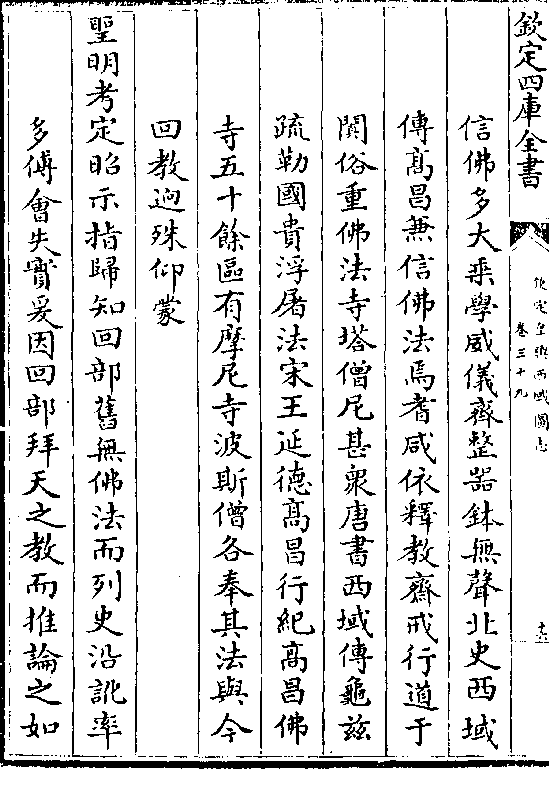 欽定四庫全書
欽定皇輿西域圖志
卷三十九
信佛多大乘學威儀齊整器鉢無聲北史西域
傳髙昌兼信佛法焉耆咸依釋教齋戒行道于
闐俗重佛法寺塔僧尼甚衆唐書西域傳龜兹
疏勒國貴浮屠法宋王延德髙昌行紀髙昌佛
寺五十餘區有摩尼寺波斯僧各奉其法與今
回教逈殊仰蒙
聖明考定昭示指歸知回部舊無佛法而列史沿訛率
多傅會失實爰因回部拜天之教而推論之如